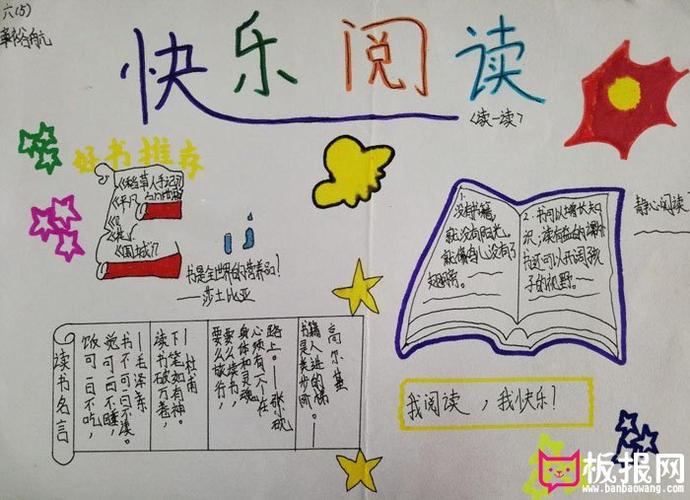 六(5)
快乐阅读
<读一读>
好书推荐
《围城》
书是全世界的营养品!
——莎士比亚
1.没有书籍,
就没有阳光,
就像鸟儿没有了
翅膀。
2.书可以增长知
识,读有益的课外
书还可以开阔孩
子的视野。
静心阅读
读书名言
饭可一日不吃,
觉可一日不睡,
书不可一日不读。
——毛泽东
读书破万卷,
下笔如有神。
——杜甫
要么读书,
要么旅行,
身体和灵魂,
必须有一个在
路上。
书籍是
人类进步
的阶梯。——
高尔基
我阅读,我快乐!
板报网
www.banbaowang.com